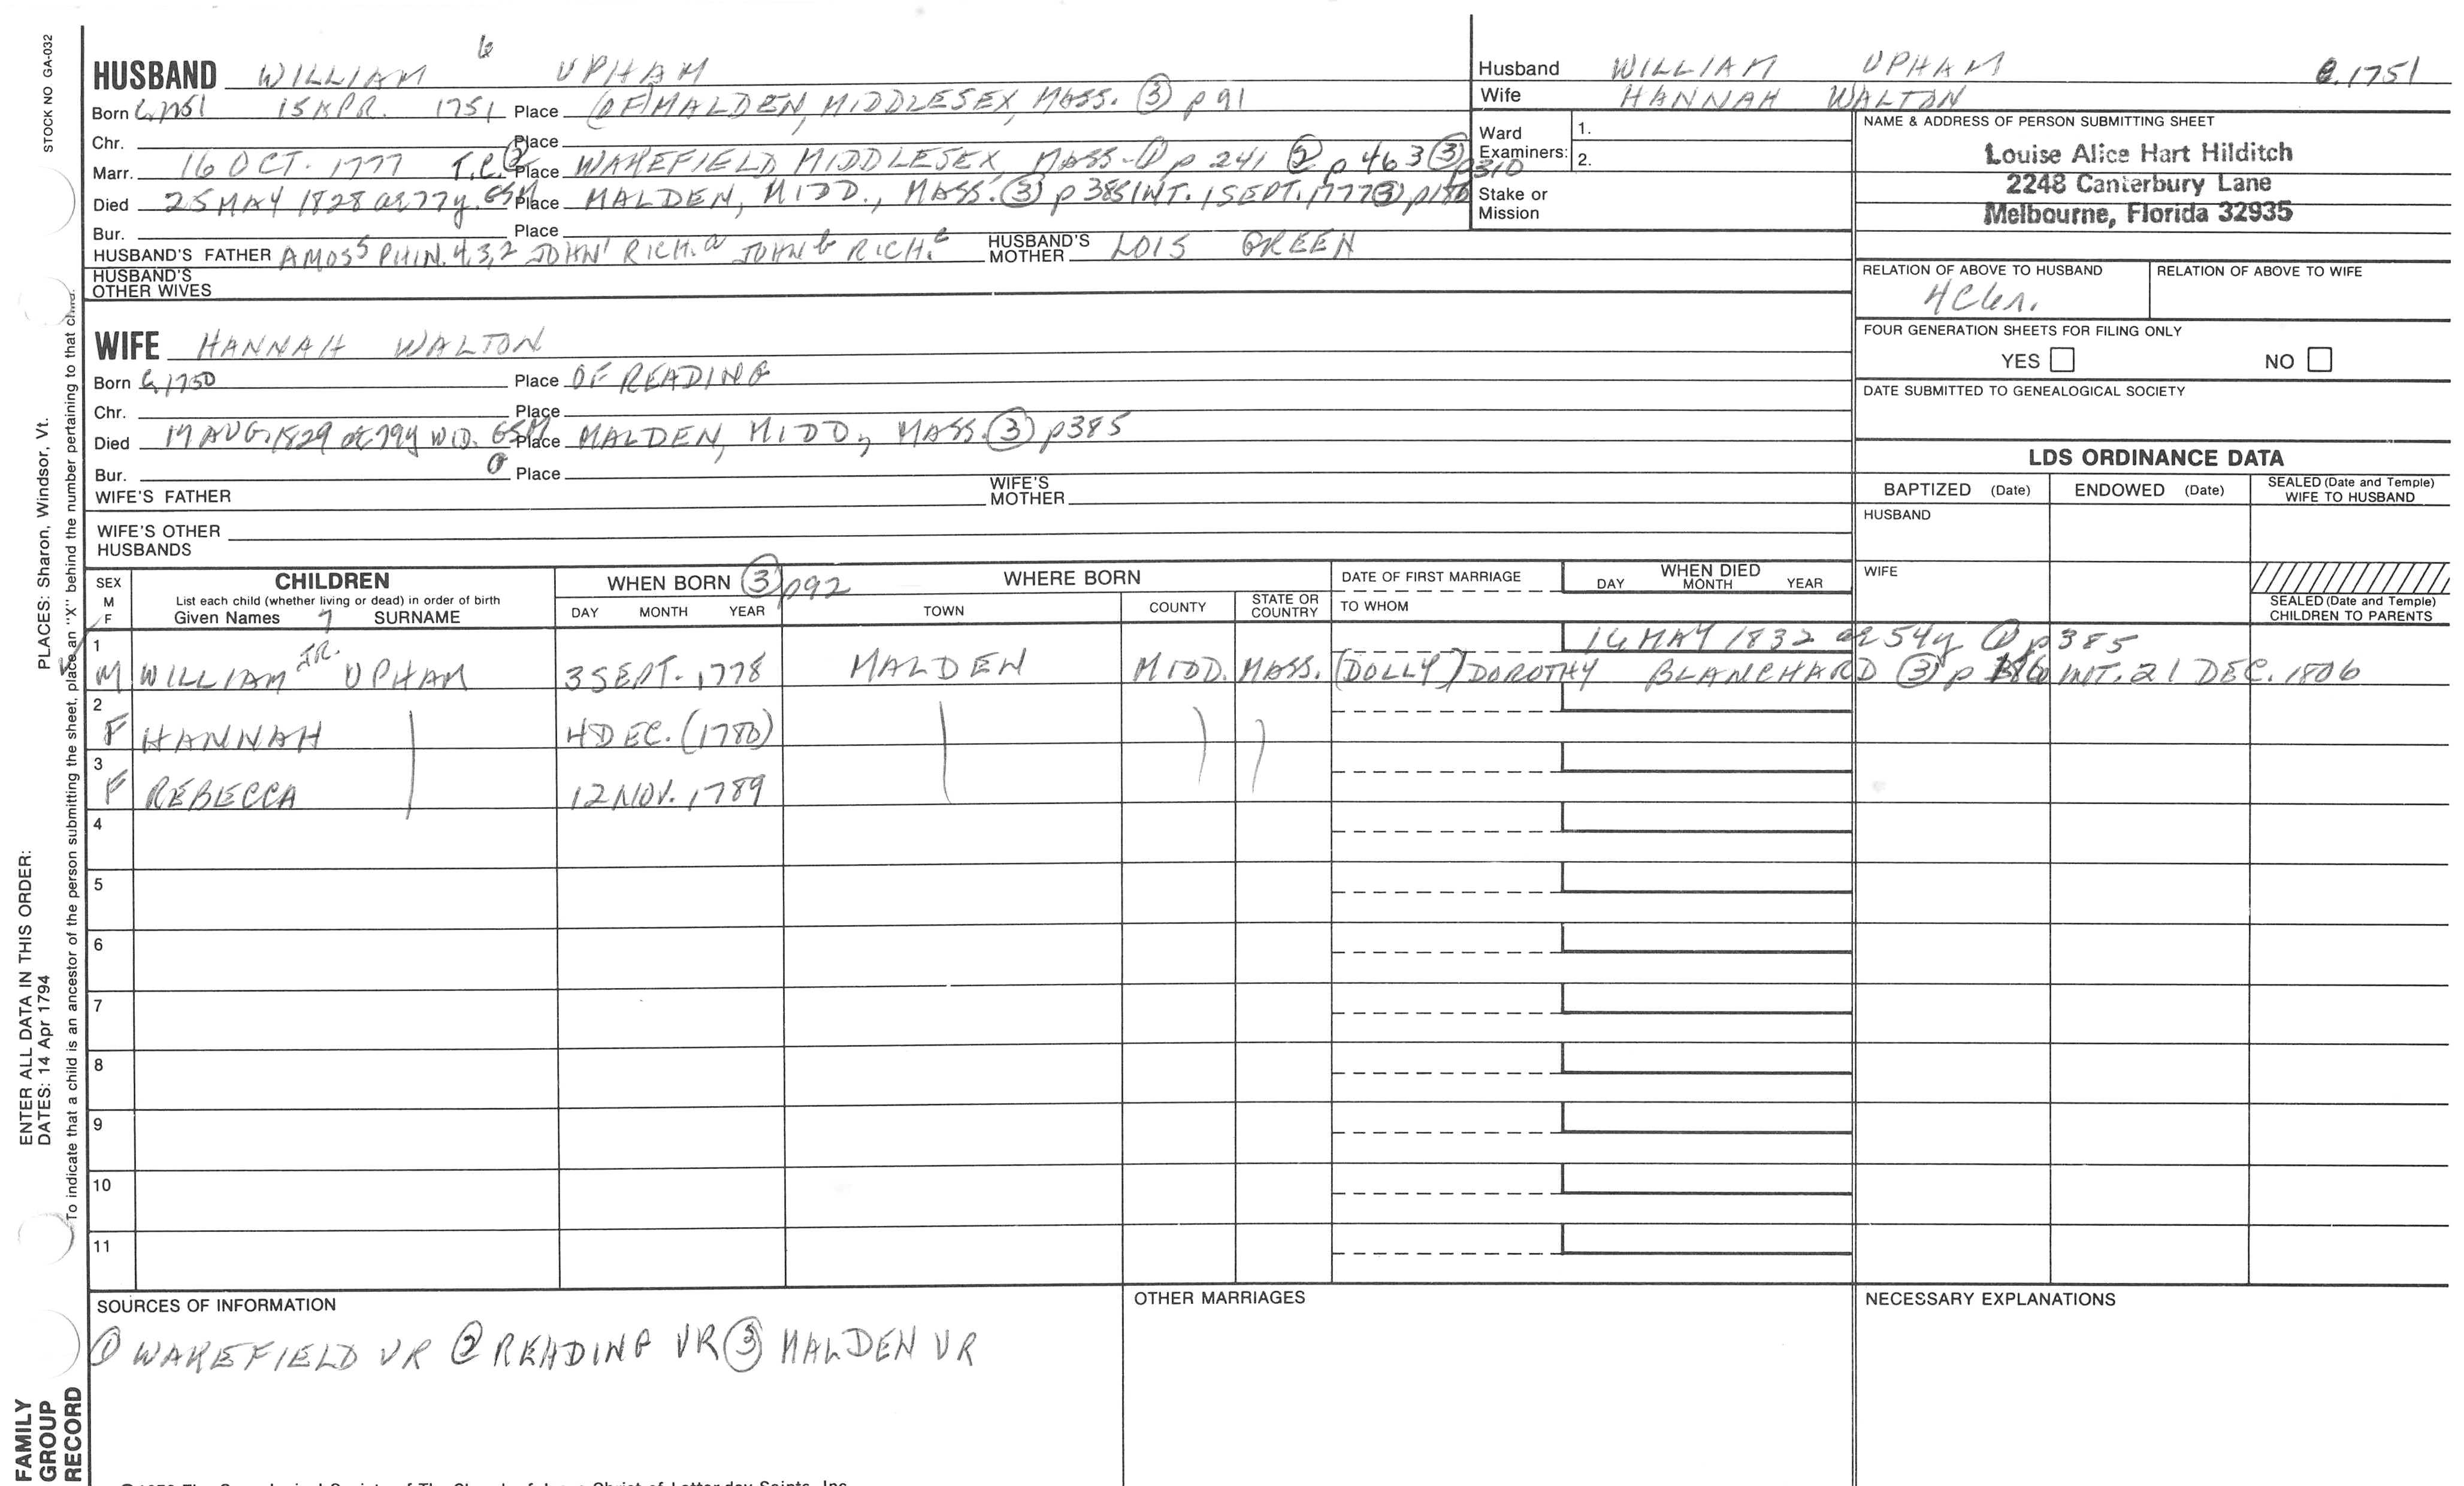 STOCK NO GA-032
6
HUSBAND WILLIAM UPHAM
Born C.1751 15 APR. 1751 Place (OF) MALDEN, MIDDLESEX, MASS. ③ p 91
Chr. Place
Marr. 16 OCT. 1777 T.C.② Place WAKEFIELD MIDDLESEX, MASS. ① p 241 ② p 463 ③ p310
Died 25 MAY 1828 ae 77y. GSM Place MALDEN, MIDD., MASS. ③ p 385 INT. 1 SEPT. 1777 ③
Bur. Place
HUSBAND'S FATHER AMOS5 PHIN. 4,3,2 JOHN1 RICH.a JOHN b RICH.c HUSBAND'S MOTHER LOIS GREEN
HUSBAND'S OTHER WIVES
Husband WILLIAM UPHAM C.1751
Wife HANNAH WALTON
Ward Examiners: 1. 2.
Stake or Mission
NAME & ADDRESS OF PERSON SUBMITTING SHEET
Louise Alice Hart Hilditch
2248 Canterbury Lane
Melbourne, Florida 32935
RELATION OF ABOVE TO HUSBAND RELATION OF ABOVE TO WIFE
FOUR GENERATION SHEETS FOR FILING ONLY
YES NO
DATE SUBMITTED TO GENEALOGICAL SOCIETY
WIFE HANNAH WALTON
Born C.1750 Place OF READING
Chr. Place
Died AUG. 1829 ae 79y WID. GSM Place MALDEN, MIDD., MASS. ③ p385
Bur. Place
WIFE'S FATHER WIFE'S MOTHER
WIFE'S OTHER HUSBANDS
LDS ORDINANCE DATA
BAPTIZED (Date) ENDOWED (Date) SEALED (Date and Temple) WIFE TO HUSBAND
HUSBAND
WIFE
SEALED (Date and Temple) CHILDREN TO PARENTS
SEX M F CHILDREN List each child (whether living or dead) in order of birth Given Names 7 SURNAME
WHEN BORN ③ p92 DAY MONTH YEAR
WHERE BORN TOWN COUNTY STATE OR COUNTRY
DATE OF FIRST MARRIAGE TO WHOM
WHEN DIED DAY MONTH YEAR
1 MAY 1832 ae 54y ① p385
M WILLIAM JR. UPHAM 3 SEPT. 1778 MALDEN MIDD. MASS. (DOLLY) DOROTHY BLANCHARD ③ p INT. 21 DEC. 1806
2
F HANNAH 4 DEC. (1780)
3
F REBECCA 12 NOV. 1789
4
5
6
7
8
9
10
11
SOURCES OF INFORMATION
① WAKEFIELD VR ② READING VR ③ MALDEN VR
OTHER MARRIAGES
NECESSARY EXPLANATIONS
ENTER ALL DATA IN THIS ORDER:
DATES: 14 Apr 1794 PLACES: Sharon, Windsor, Vt.
To indicate that a child is an ancestor of the person submitting the sheet, place an "X" behind the number pertaining to that child.
FAMILY
GROUP
RECORD